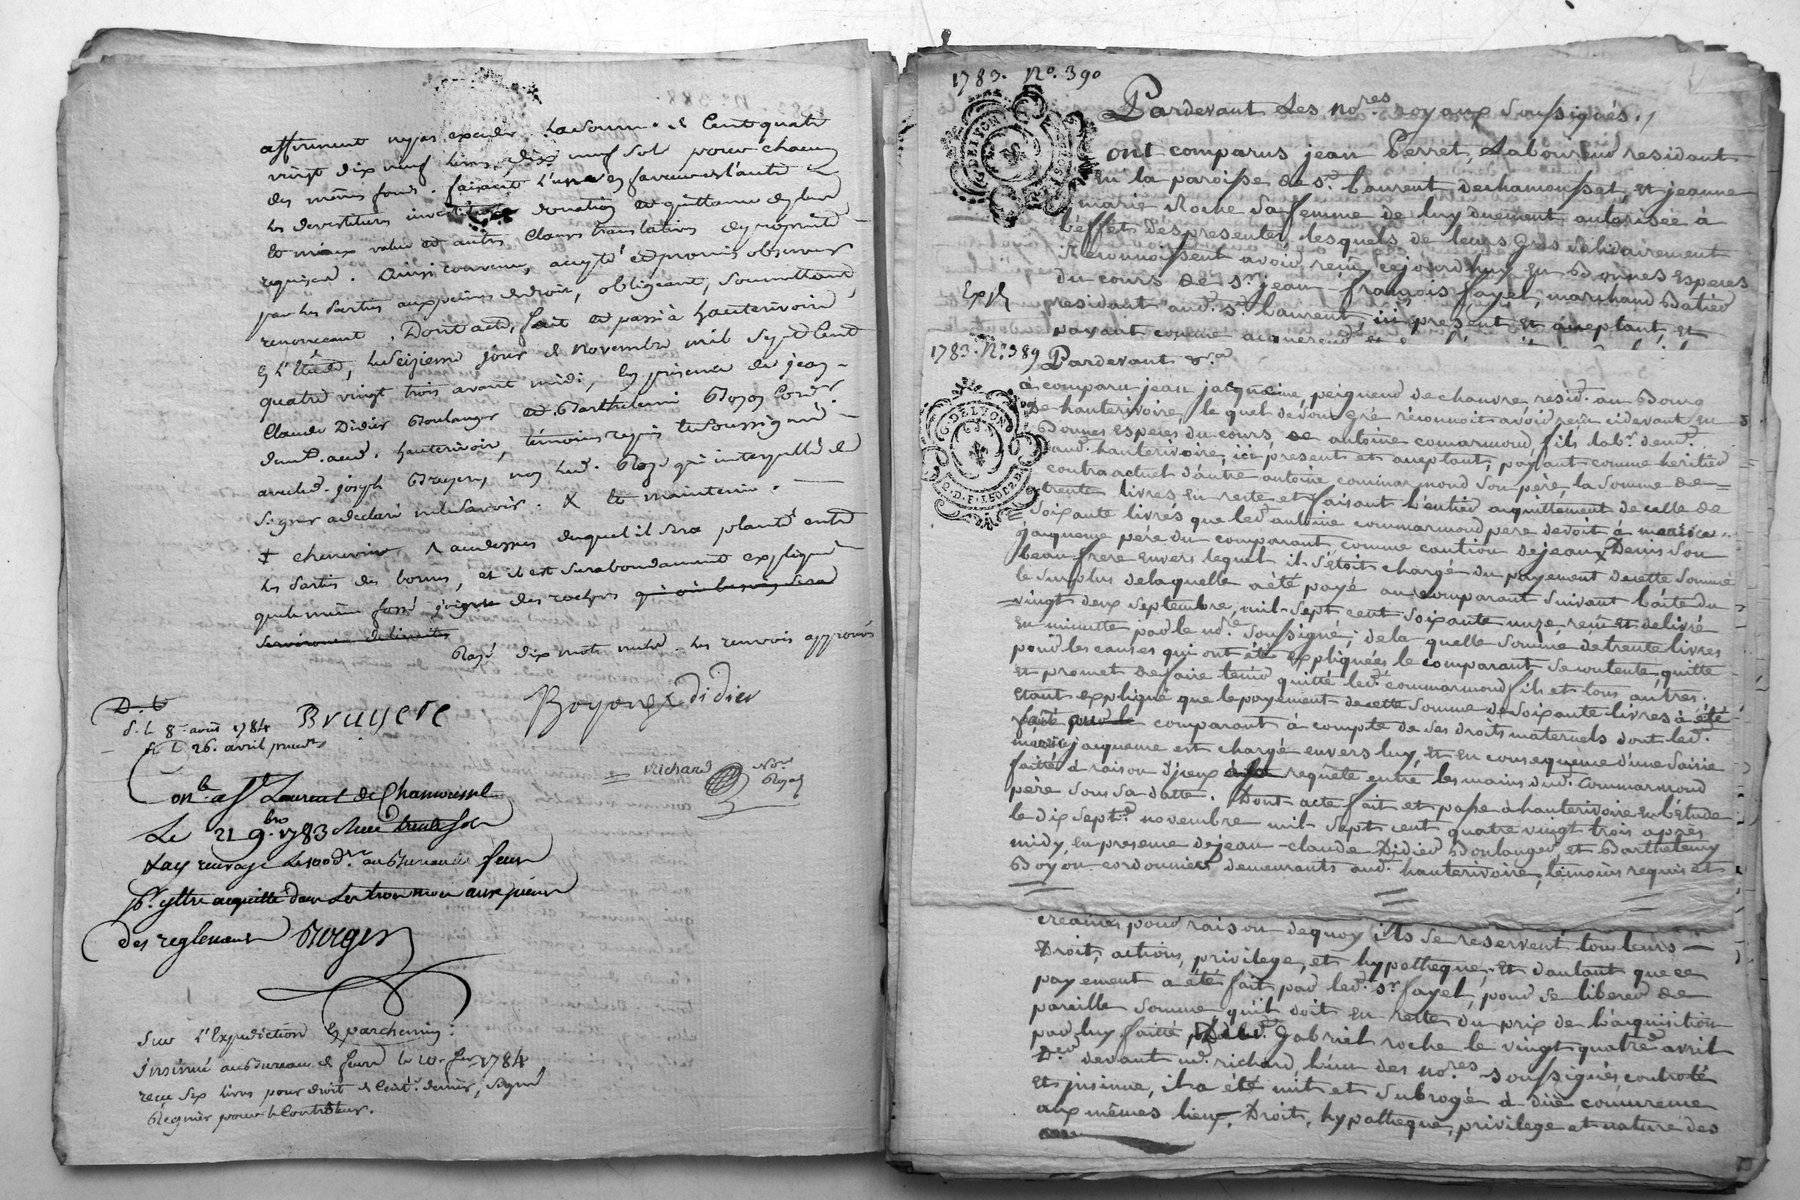 affirment n'y pas exceder la somme de Cent quatre
vingt dix neuf livres dix neuf sols pour chacun
des mêmes fonds. faisant l'une en faveur de l'autre
les devestitures investitures donation et quittance de plus
et mieux value et autres clauses translatives de propriété
requises. Ainsi convenu, accepté et promis observer
par les parties aux peines de droit, obligeant, soumettant,
renonceant, Dont acte, fait et passé à hauterivoire,
en l'Etude, le seizieme jour de novembre mil sept Cent
quatre vingt trois avant midi, en presence de jean
Claude Didier Boulanger et Barthelemi Boyon Cord.er
dem.ts aud. hauterivoire, témoins requis et soussignés
avec led. joseph Bruyere, non lad. qui interpellée de
signer a declaré ne le savoir. X et maintenir.
‡ chenevier & audessus duquel il sera planté entre
les parties des bornes, et il est surabondamment expliqué
que le même fossé joigne des rochers
Rayé dix mots nuls. les renvois approuvés
Bruyere Boyon Didier
D. G
S. L. 8 aoust 1784
26. avril
richard No.re Royal
onle. a St Laurent de Chamousset
Le 21 9.bre 1783
au Bureau de feurs
des reglemens Berger
Sur l'Expedition En parchemin:
insinué au Bureau de feurs le 10. 1784
reçu six livres pour droit de Cent.e denier, signé
Regnier pour le Controleur.
1783. No. 390
Pardevant Les no.res royaux Soussignés./
ont comparus jean Perret, Laboureur residant
En la paroisse de St. Laurent dechamousset, et jeanne
marie Roche Sa femme de luy duement autorisée à
L'effet des presentes, lesquels de leurs gres solidairement
Reconnoissent avoir reçu cejourd'huy En Bonnes Especes
du cours de Sr. jean françois fayel, marchand Batier
Exp.é
residant aud. St. Laurent, ici present et acceptant, et
payant comme acquereur
1783. No. 389 Pardevant &.a
à comparu jean jacqueme, peigneur de chanvre resid.t au Bourg
de hauterivoire, le quel de son gré réconnoit avoir reçu cidevant En
Bonnes Especes du cours, de antoine comarmond, fils lab.r dem.t
aud. hauterivoire, ici present et acceptant, payant comme heritier
contractuel d'autre antoine commarmond Son père, la Somme de
trente livres En reste et faisant L'entier acquittement de celle de
Soixante livres que led. antoine commarmond pere devoit à maurice
jacqueme père du comparant comme caution de jean Denis Son
beau frere envers lequel il S'étoit chargé du payement de cette Somme
le Surplus de laquelle a été payé au comparant Suivant L'acte du
vingt deux Septembre, mil Sept cent Soixante unze reçu et delivré
En minutte par le no.re Soussigné; de la quelle Somme de trente livres
pour les causes qui ont été Expliquées le comparant Se contente, quitte
et promet de faire tenir quitte led. commarmond fils et tous autres;
Etant expliqué que le payement de cette Somme de Soixante livres à été
fait pour le comparant à compte de ses droits maternels dont led.
maurice jacqueme est chargé envers luy, Et En consequence d'une Saisie
faitte à raison d'jceux requête entre les mains dud. commarmond
père Sous Sa datte. Dont acte fait et passé à hauterivoire En L'étude
le dix Sept.e novembre mil Sept cent quatre vingt trois après
midy, En presence de jean-claude Didier Boulanger, et Barthelemy
Boyon cordonnier demeurants aud. hauterivoire, témoins requis et
créance pour raison de quoy ils Se reservent tous leurs
Droit, actions, privilege, et hypotheque; Et d'autant que ce
payement a été fait par led. Sr. fayel, pour Se liberer de
pareille Somme qu'il doit En reste du prix de L'acquisition
par luy faitte Gabriel roche le vingt quatre avril
D.er devant m.e richard, L'un des no.res Soussignés, controlé
Et jnsinué, il a été mit et Subrogé à dire concurrence
aux mêmes lieux, Droit, hypotheque, privilege et nature des
G. DE LYON